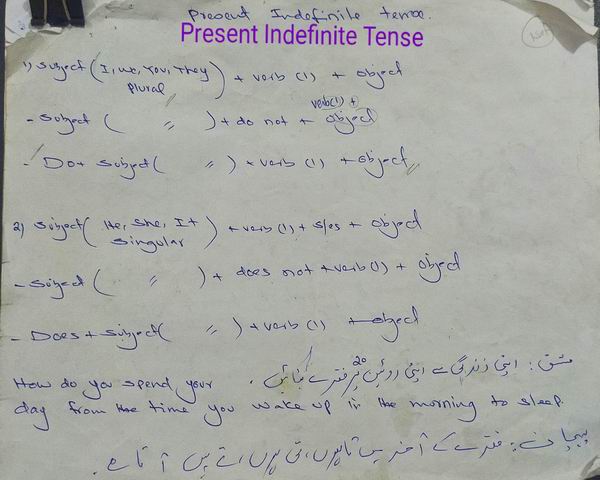 Present Indefinite tense.
Present Indefinite Tense
1) Subject (I, we, You, They plural) + verb (1) + object
verb(1) +
- Subject ( " ) + do not + object
- Do + Subject ( " ) + verb (1) + object
2) Subject ( He, She, It singular ) + verb (1) + s/es + object
- Subject ( " ) + does not + verb(1) + object
- Does + Subject ( " ) + verb (1) + object
مشق: اپنی زندگی سے اپنی روٹین پر 20 فقرے بنائیں .
How do you spend your
day from the time you wake up in the morning to sleep.
پہچان: فقرے کے آخر میں تا ہوں، تی ہوں، تے ہیں آتا ہے .